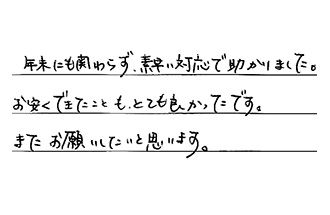 年末にも関わらず、素早い対応で助かりました。
お安くできたことも、とても良かったです。
またお願いしたいと思います。